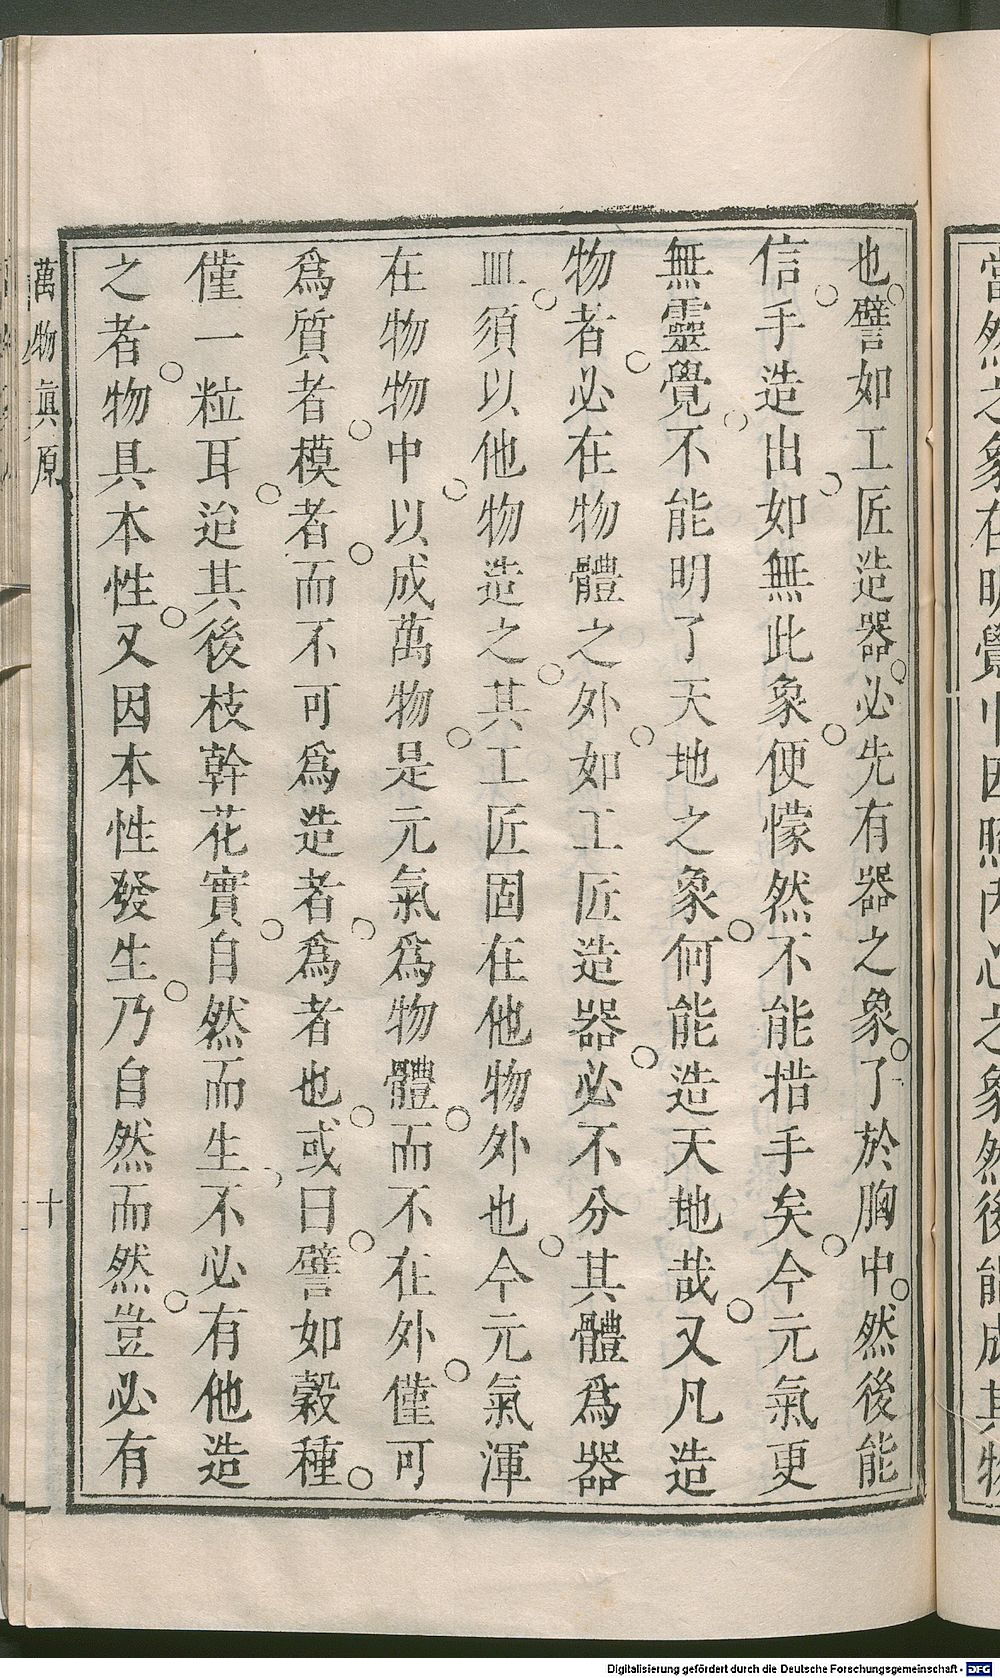 當然之象在明覺中因照內心之象然後能成其物
也譬如工匠造器必先有器之象了於胸中然後能
信手造出如無此象便懞然不能措手矣今元氣更
無靈覺不能明了天地之象何能造天地哉又凡造
物者必在物體之外如工匠造器必不分其體爲器
皿須以他物造之其工匠固在他物外也今元氣渾
在物物中以成萬物是元氣爲物體而不在外僅可
爲質者模者而不可爲造者爲者也或曰譬如穀種
僅一粒耳迨其後枝幹花實自然而生不必有他造
之者物具本性又因本性發生乃自然而然豈必有
萬物眞原
十
Digitalisierung gefördert durch die Deutsche Forschungsgemeinschaft - DFG